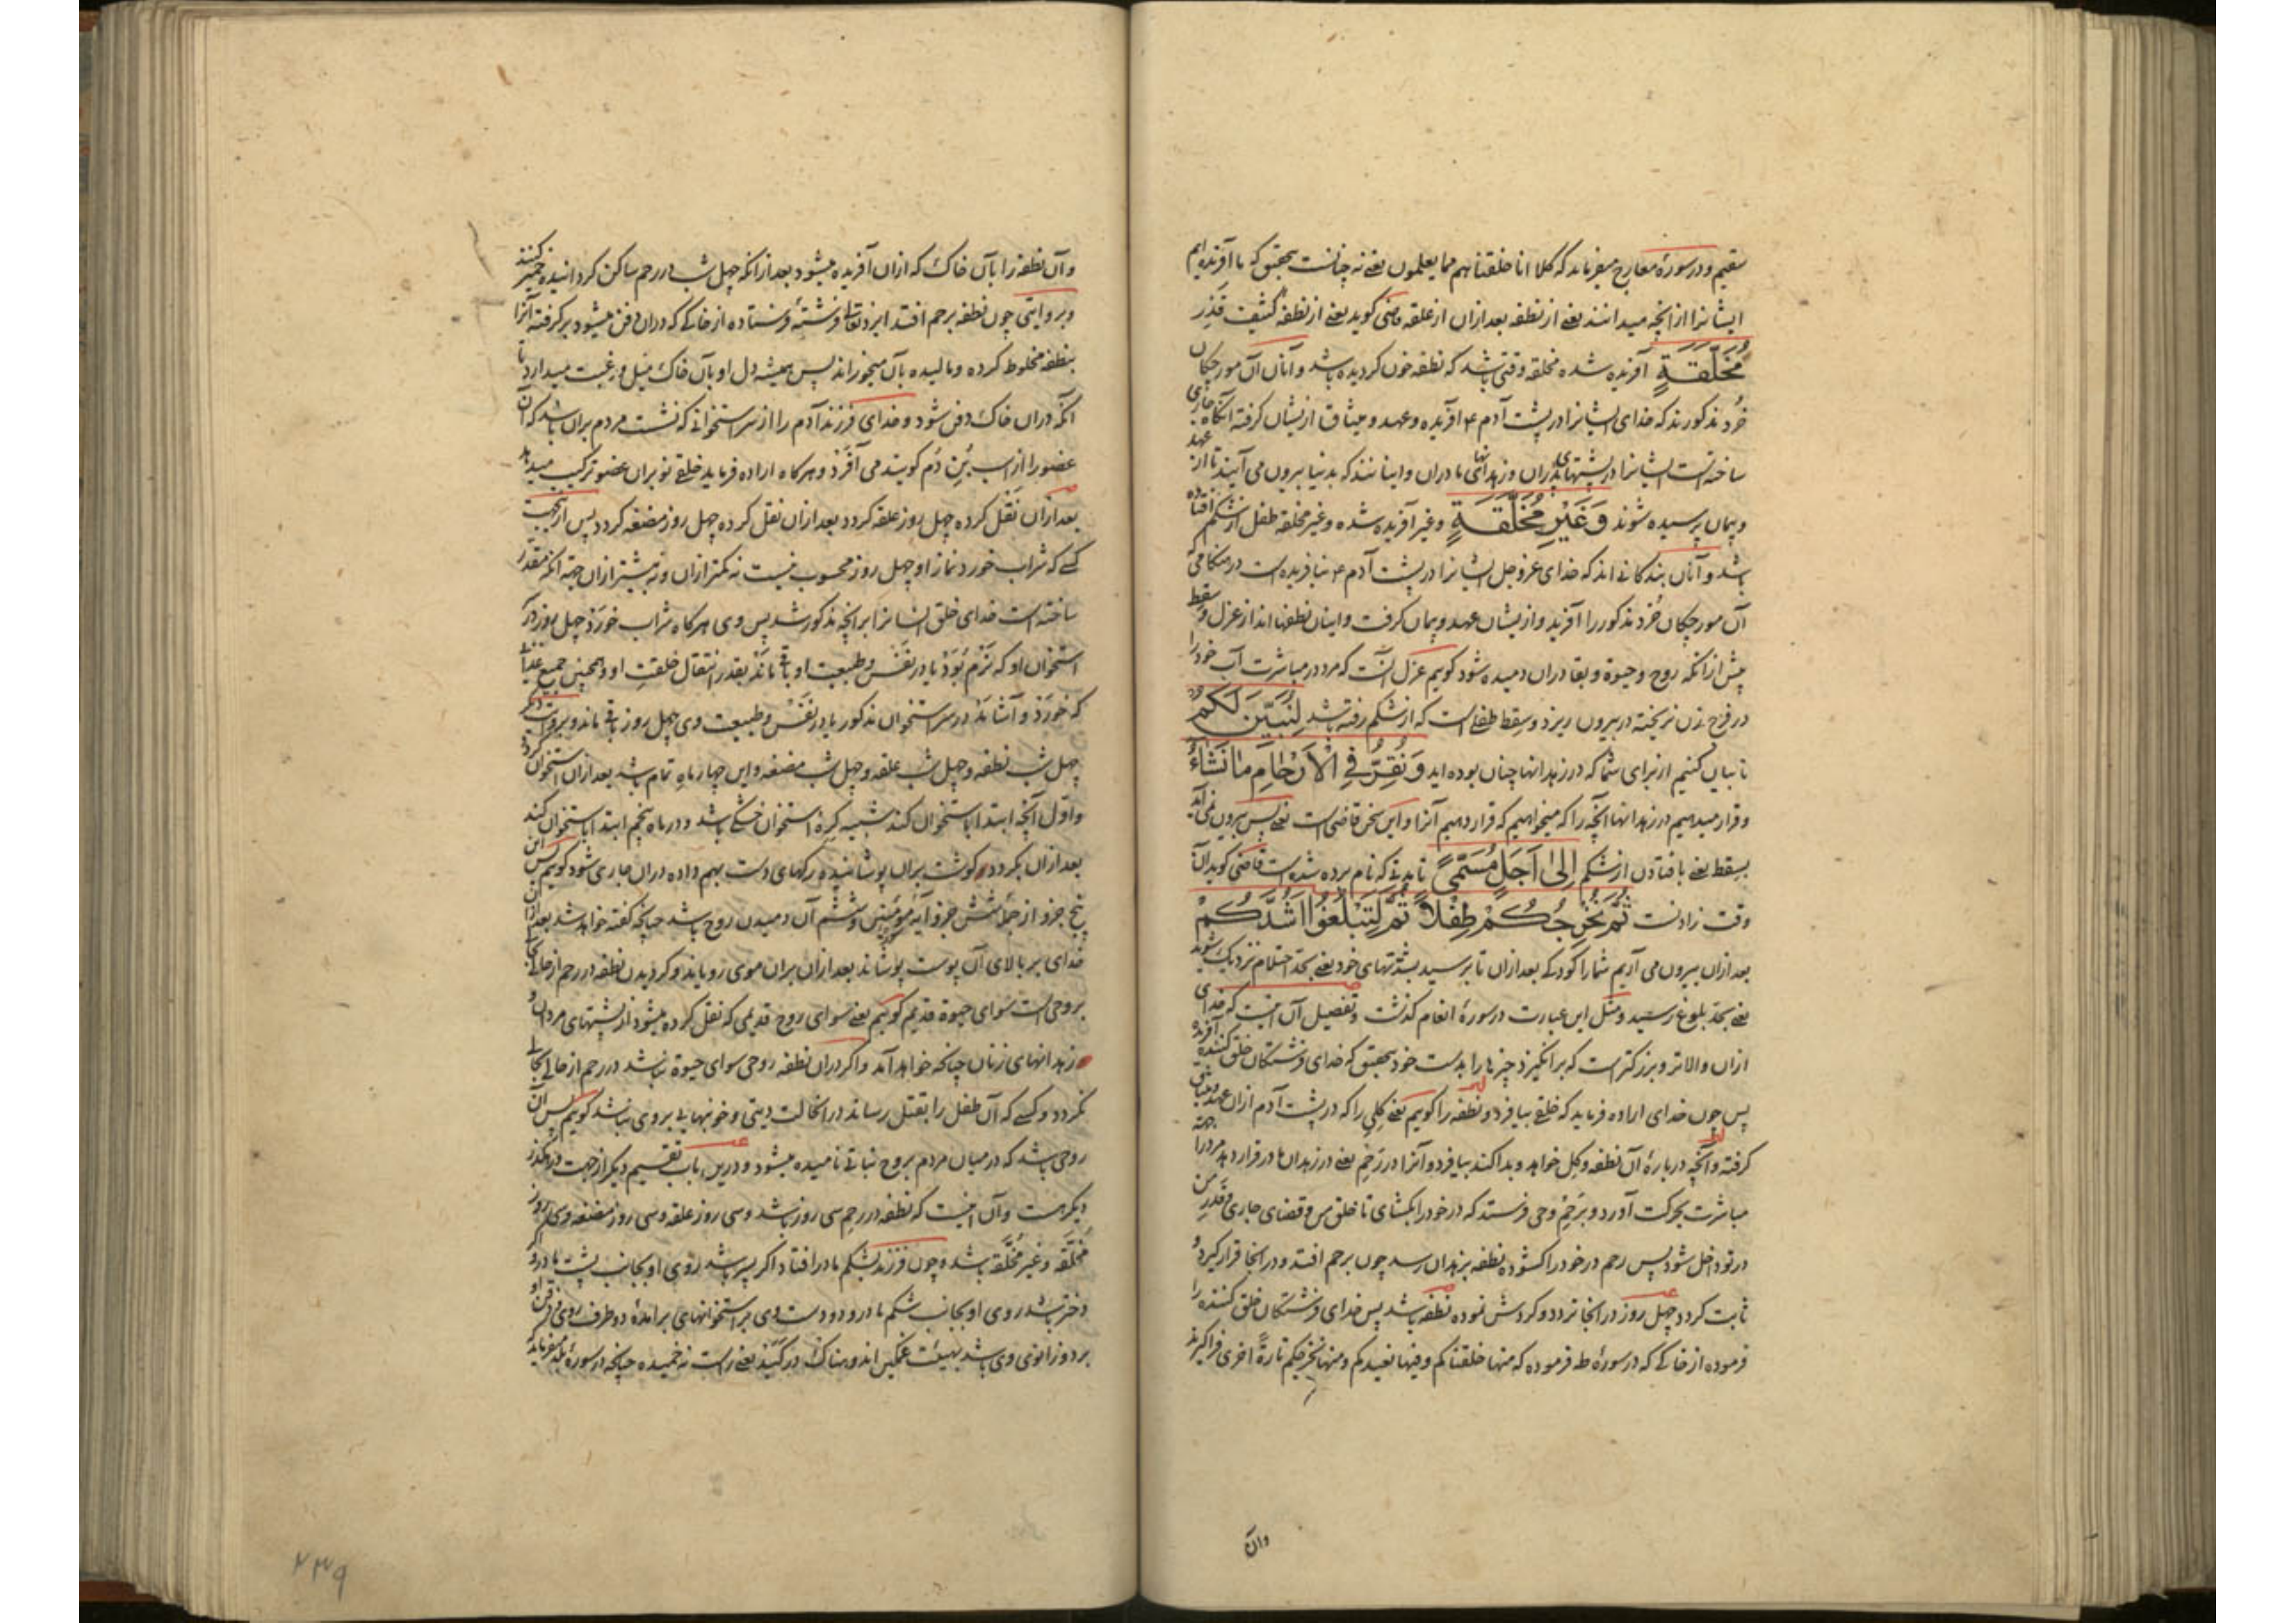 سقیم و در سورهٔ معارج میفرماید که کلا انا خلقناهم مما یعلمون یعنی نه چنانست بتحقیق که ما آفریده ایم
ایشانرا از انچه میدانند یعنی از نطفه بعد ازان از علقه قاضی کوید یعنی از نطفهٔ کثیف قذر
مُخَلَّقَةٍ آفریده شده مخلقه وقتی باشد که نطفه خون کردیده باشد و آنان آن مورچکان
خُرد مذکورند که خدای ایشانرا در پشت آدم ع آفریده و عهد و میثاق ازیشان کرفته آنکاه جاری
ساخته است ایشانرا در پشتهای پدران و زهدانهای مادران و اینانند که بدنیا بیرون می آیند تا از عهد
و پیمان پرسیده شوند وَغَیْرِ مُخَلَّقَةٍ و غیر آفریده شده و غیر مخلقه طفل از شکم افتاده
باشد و آنان بندکانی اند که خدای عزوجل ایشانرا در پشت آدم ع نیافریده است در هنکامی که
آن مورچکان خُرد مذکور را آفرید و ازیشان عهد و پیمان کرفت و اینان نطفها اند از عزل و سقط
پیش ازانکه روح و حیوة و بقا دران دمیده شود کویم عزل آنست که مرد در مباشرت آب خود را
در فرج زن نریخته در بیرون ریزد و سِقط طفلی است که از شکم رفته باشد لِنُبَیِّنَ لَکُمْ
تا بیان کنیم از برای شما که در زهدانها چنان بوده اید وَنُقِرُّ فِی الْاَرْحَامِ مَا نَشَاءُ
و قرار میدهیم در زهدانها آنچه را که میخواهیم که قرار دهیم آنرا و این سخن قاضی است یعنی پس بیرون نمی آید
بسقط یعنی بافتادن از شکم اِلٰی اَجَلٍ مُسَمًّی تا مدتی که نام برده شده است قاضی کوید آن
وقت زادنست ثُمَّ نُخْرِجُکُمْ طِفْلاً ثُمَّ لِتَبْلُغُوا اَشُدَّکُمْ
بعد ازان بیرون می آریم شما را کودکی بعد ازان تا برسید بشدتهای خود یعنی بحد احتلام نزدیک شوید
یعنی بحد بلوغ رسید و مثل این عبارت در سورهٔ انعام کذشت و تفصیل آن اینست که خدای
ازان والاتر و بزرکتر است که برانکیزد چیزها را بدست خود بتحقیق که خدای فرشتکان خلق کننده آفریده
پس چون خدای اراده فرماید که خلقی بیافرد و نطفه را کویم یعنی کلی را که در پشت آدم ازان عهد و میثاق
کرفته و آنچه دربارهٔ آن نطفه و کل خواهد و بدا کند بیافرد و آنرا در رَحِم یعنی در زهدان مادر قرار دهد مرد را
مباشرت بحرکت آورد و برَحِم وحی فرستد که در خود را بکشای تا خلق من و قضای جاری و قدر من
در تو داخل شود پس رحم در خود را کشوده نطفه بزهدان رسد چون برحم افتد و در انجا قرار کیرد و
ثابت کردد چهل روز در انجا تردد و کردش نموده نطفه باشد پس خدای فرشتکان خلق کننده را
فرموده از خاکی که در سورهٔ طه فرموده که منها خلقناکم و فیها نعیدکم و منها نخرجکم تارةً اخری فراکیرند
وآن
وآن نطفه را بآن خاک که ازان آفریده میشود بعد ازانکه چهل شب در رحم ساکن کردانیده خمیر کنند
و بروایتی چون نطفه برحم افتد ایزد تعالی فرشتهٔ فرستاده از خاکی که دران دفن میشود برکرفته آنرا
بنطفه مخلوط کرده و مالیده بآن میخوراند پس همیشه دل او بآن خاک میل و رغبت میدارد تا
آنکه دران خاک دفن شود و خدای فرزند آدم را از سر استخوانی که نشست مردم بران باشد که آن
عضو را از اسب بُنِ دُم کویند می آفَرَد و هرکاه اراده فرماید خلقی نو بران عضو ترکیب میدهد
بعد ازان نَقَل کرده چهل روز علقه کردد بعد ازان نقل کرده چهل روز مضغه کردد پس ازینجهت
کسی که شراب خورد نماز او چهل روز محسوب نیست نه کمتر ازان و نه بیشتر ازان جهة آنکه مقدّر
ساخته است خدای خلق انسانرا برانچه مذکور شد پس وی هرکاه شراب خورَد چهل روز در
استخوان او که نَرم بُوَد یا در نَفَس و طبیعت او باقی مانَد بقدر انتقال خلقتِ او و همچنین جمیع غذا
که خورَد و آشامَد در سر استخوان مذکور یا در نَفَس و طبیعت وی چهل روز باقی ماند و بروایت دیکر
چهل شب نطفه و چهل شب علقه و چهل شب مضغه و این چهار ماهِ تمام باشد بعد ازان استخوان کردد
و اوّل آنچه ابتدا باستخوان کند شبیه کرهٔ استخوان خشکی باشد و در ماه پنجم ابتدا باستخوان کند
بعد ازان کردد کوشت بران پوشانیده رکهای دست بهم داده دران جاری شود کویم پس این
پنج جزو از جملهٔ شش جزو آیهٔ مومنین و ششم آن دمیدن روح باشد چنانچه کفته خواهد شد بعد ازان
خدای بر بالای آن پوست پوشاند بعد ازان بران موی رویاند و کردیدن نطفه در رحم از حالی بحالی
بروحی است سوای حیوة قدیم کویم یعنی سوای روح قدیمی که نقل کرده میشود از پشتهای مردان و
زهدانهای زنان چنانکه خواهد آمد و اکر دران نطفه روحی سوای حیوة نباشد در رحم از حالی بحالی
نکردد و کسی که آن طفل را بقتل رساند در انحالت دیتی و خونبهایی بر وی نباشد کویم پس آن
روحی باشد که در میان مردم بروح نباتی نامیده میشود و درین باب تقسیم دیکر از جهت
دیکر هست و آن اینست که نطفه در رحم سی روز باشد و سی روز علقه و سی روز مضغه و سی روز
مُخلَّقه و غیر مُخلَّقه باشد و چون فرزند بشکم مادر افتاد اکر پسر باشد روی او بجانب پشت مادر و اکر
دختر باشد روی او بجانب شکم مادر و دو دست وی بر استخوانهای برآمدهٔ دو طرف روی
بر دو زانوی وی باشد بهیئت غمکین اندوهناک در کَبَد یعنی راست نه خمیده چنانچه در سورهٔ بلد میفرماید
۲۳۹